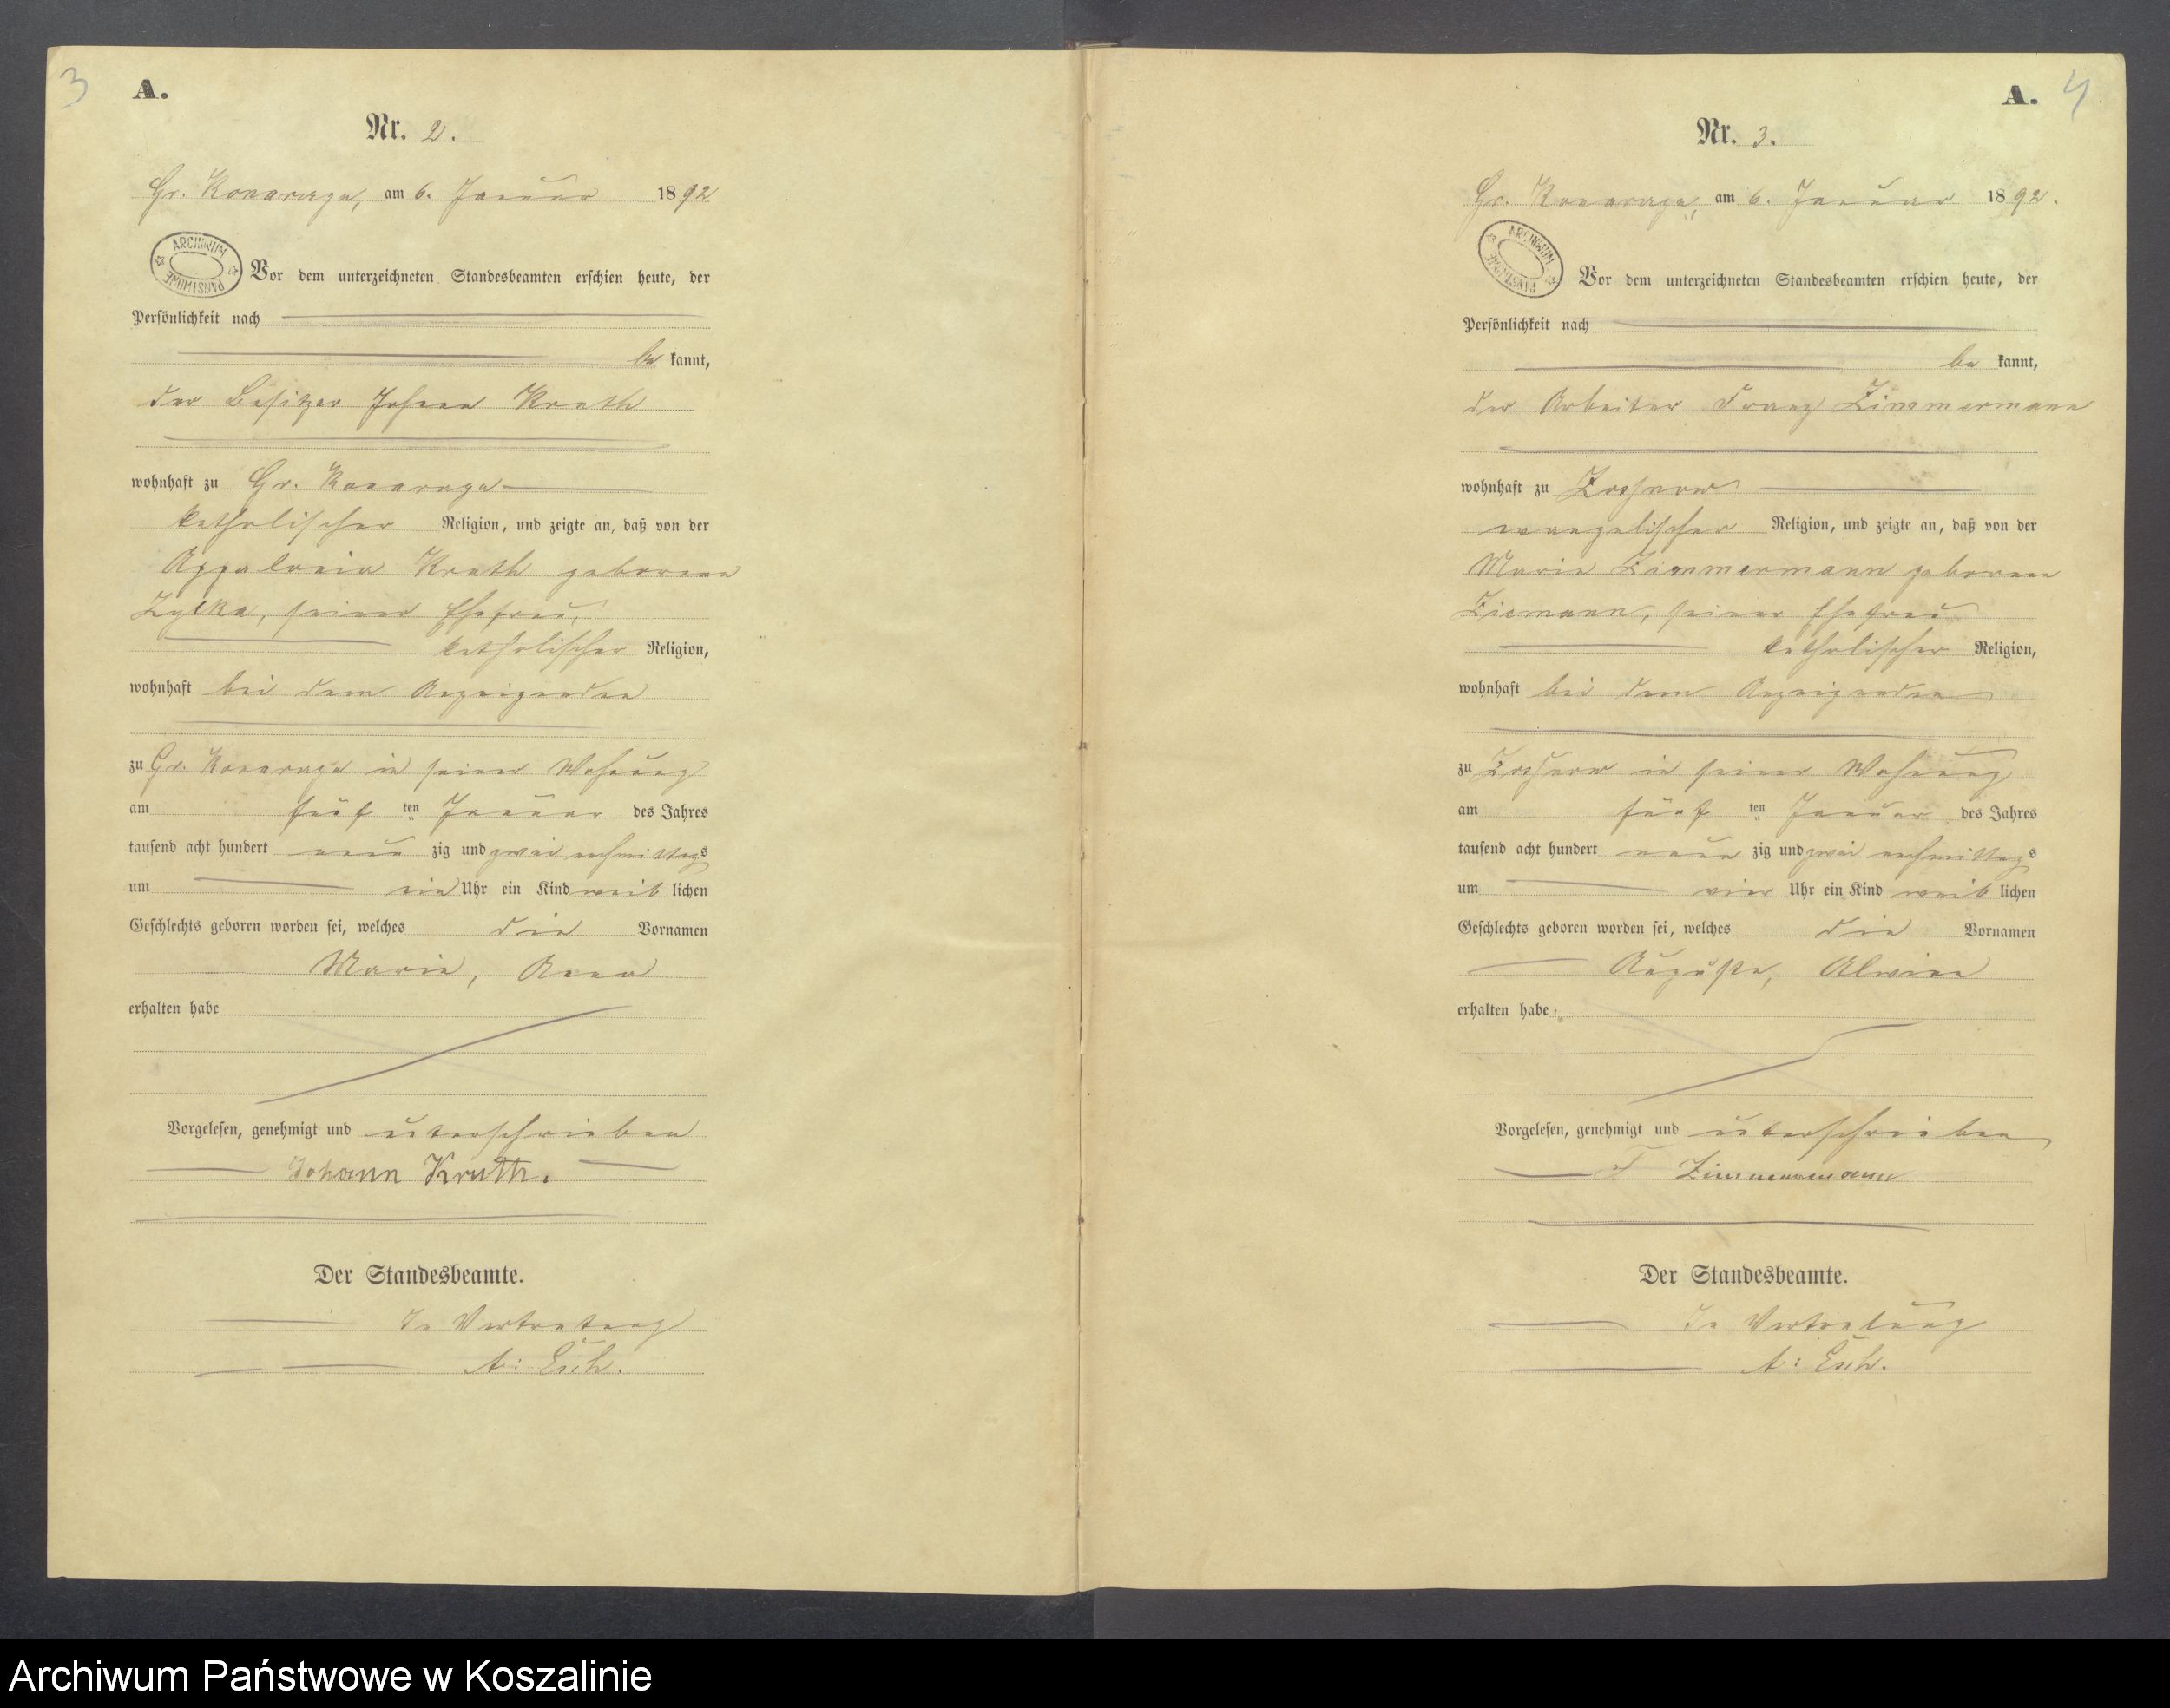 3
A.
Nr. 2.
Gr. Konarzyn, am 6. Januar 1892
ARCHIWUM PAŃSTWOWE
Vor dem unterzeichneten Standesbeamten erschien heute, der
Persönlichkeit nach
be kannt,
der Besitzer Johann Kruth
wohnhaft zu Gr. Konarzyn
katholischer Religion, und zeigte an, daß von der
Appalonia Kruth geborene
Zylka, seiner Ehefrau,
katholischer Religion,
wohnhaft bei dem Anzeigenden
zu Gr. Konarzyn in seiner Wohnung
am fünften Januar des Jahres
tausend acht hundert neun zig und zwei nachmittags
um ein Uhr ein Kind weib lichen
Geschlechts geboren worden sei, welches die Vornamen
Maria, Anna
erhalten habe
Vorgelesen, genehmigt und unterschrieben
Johann Kruth.
Der Standesbeamte.
In Vertretung
A: Esch.
A. 4
Nr. 3.
Gr. Konarzyn, am 6. Januar 1892.
ARCHIWUM PAŃSTWOWE
Vor dem unterzeichneten Standesbeamten erschien heute, der
Persönlichkeit nach
be kannt,
der Arbeiter Franz Zimmermann
wohnhaft zu
evangelischer Religion, und zeigte an, daß von der
Marie Zimmermann geborene
Ziemann, seiner Ehefrau
katholischer Religion,
wohnhaft bei dem Anzeigenden
zu in seiner Wohnung
am fünften Januar des Jahres
tausend acht hundert neun zig und zwei nachmittags
um vier Uhr ein Kind weib lichen
Geschlechts geboren worden sei, welches die Vornamen
Auguste, Alwine
erhalten habe.
Vorgelesen, genehmigt und unterschrieben
F Zimmermann
Der Standesbeamte.
In Vertretung
A: Esch.
Archiwum Państwowe w Koszalinie